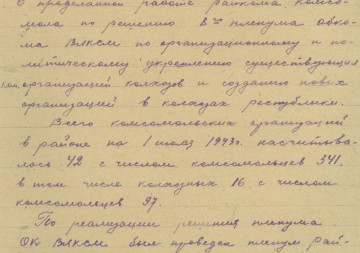 О проделанной работе райкома комсо-
мола по решению 8го пленума Обко-
ма ВЛКСМ по организационному и по-
литическому укреплению существующих
ком. организаций колхозов и созданию новых
организаций в колхозах республики.
Всего комсомольских организаций
в районе на 1 июля 1943г. насчитыва-
лось 42 с числом комсомольцев 341.
в том числе колхозных 16 с числом
комсомольцев 97.
По реализации решения пленума
ОК ВЛКСМ был проведен пленум рай-